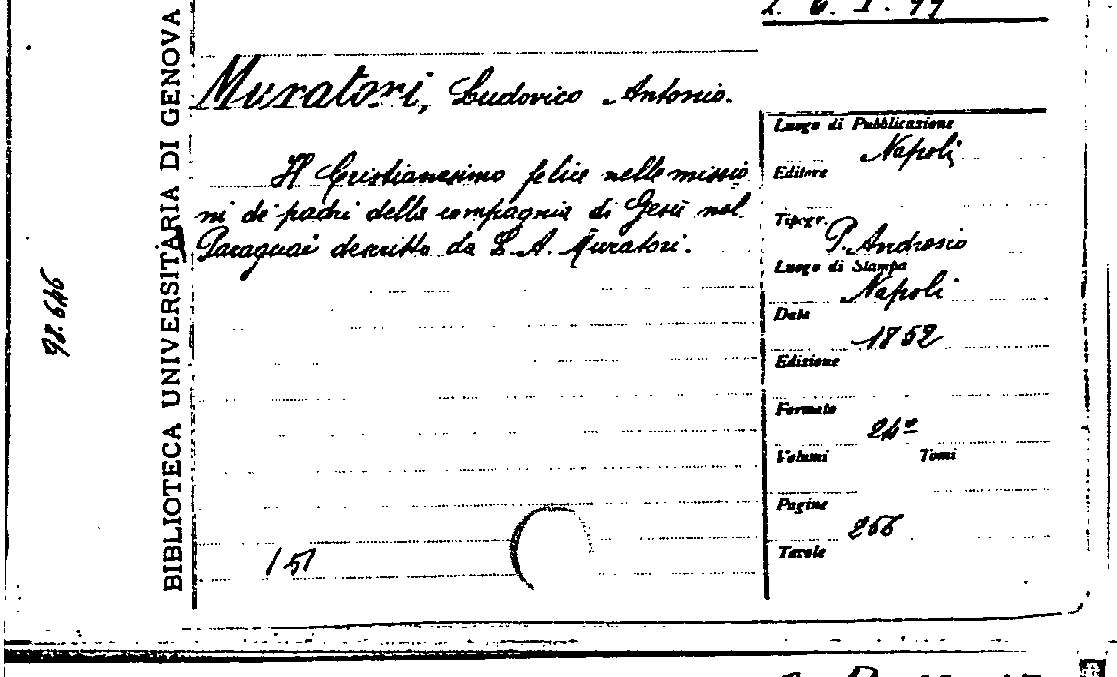 BIBLIOTECA UNIVERSITARIA DI GENOVA
98.646
Muratori, Ludovico Antonio.
Il Cristianesimo felice nelle missio
ni de' padri della compagnia di Gesù nel
Paraguai descritto da L. A. Muratori.
151
Luogo di Pubblicazione
Napoli
Editore
Tipogr.
P. Androsio
Luogo di Stampa
Napoli
Data
1852
Edizione
Formato
24º
Volumi Tomi
Pagine
256
Tavole